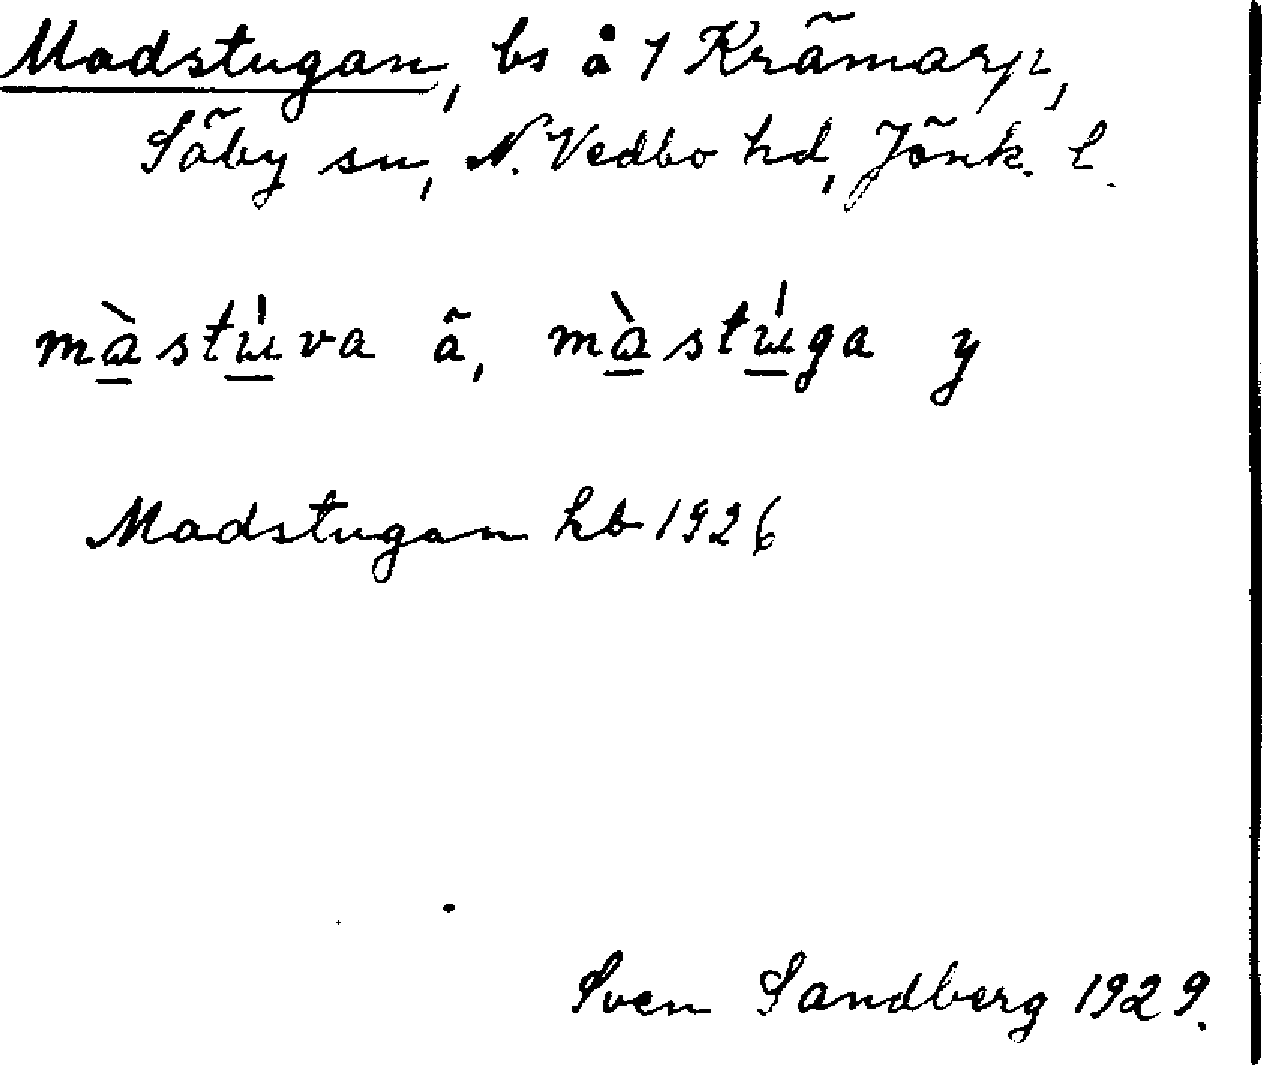 Madstugan, bs å 1 Krämarp,
Säby sn, N. Vedbo hd, Jönk. l.
màstúva ä, màstúga y
Madstugan hb 1926
Sven Sandberg 1929.